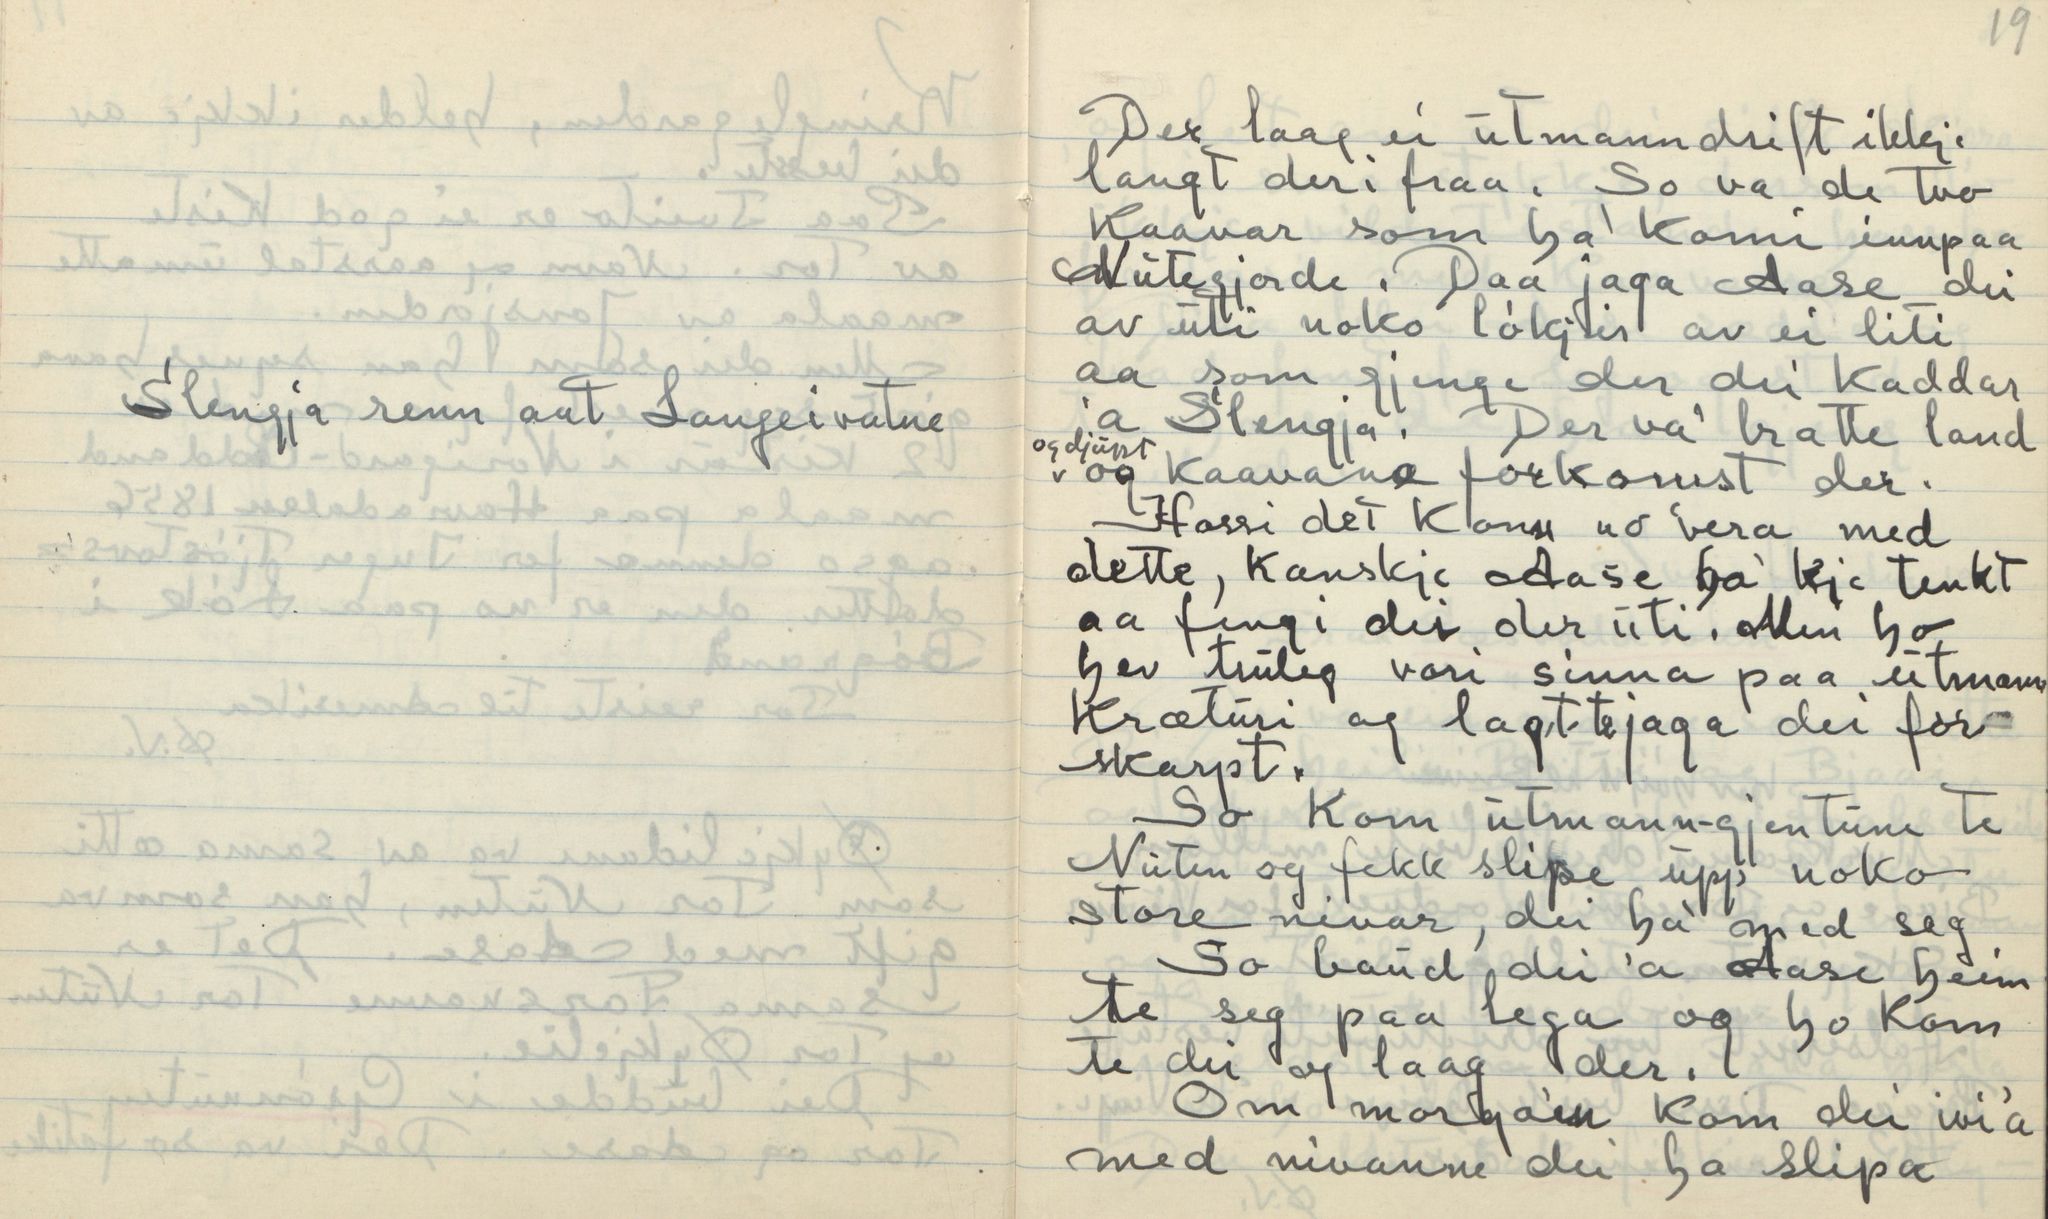 Slengja renn aat Langeivatne
19
Der laag ei ütmanndrift ikkje
langt derifraa. So va de tvo
Kaavar som ha' komi innpaa
Nütegjorde. Daa jaga Aase dei
av üti noko lókjir av ei liti
aa som gjenge der dei kaddar
'a Slengja'. Der va' bratte land
og djüpt
og kaavane forkomst der.
Hossi det konn no vera med
dette, kanskje Aase ha' kje tenkt
aa fengi dei der üti. Men ho
hev trüleg vori sinna paa ütmanns
krætüri og lagt te jaga dei for
skarpt.
So kom ütmann-gjentüne te
Nüten og fekk slipe üpp noko
store nivar, dei ha' med seg
So baud dei 'a Aase heim
te seg paa lega og ho kom
te dei og laag der.
Om morgo'en kom dei ivi'a
med nivanne dei ha slipa